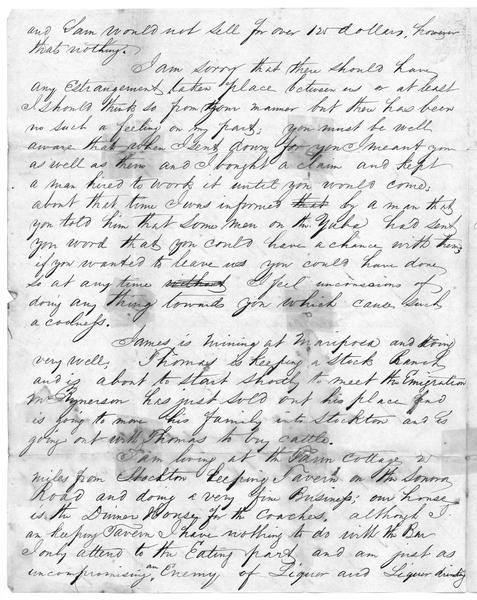 and Sam would not sell for over 120 dollars, however
that nothing.
I am sorry that there should have
any Estrangement taken place between us or at least
I should think so from your manner but there has been
no such a feeling on my part; you must be well
aware that when I sent down for you I meant you
as well as them and I bought a claim and kept
a man hired to work it until you would come;
about that time I was informed that by a man that
you told him that some men on the Yuba had sent
you word that you could have a chance with them;
if you wanted to leave us you could have done
so at any time without I feel unconscious of
doing any thing towards you which cause such
a coolness.
James is mining at Mariposa and doing
very well. Thomas is keeping a Stock Ranch
and is about to start shortly to meet the Emigration
Mr has just sold out his place and
is going to move his family into Stockton and is
going out with Thomas to buy cattle.
I am living at the Farm Cottage,
miles from Stockton keeping Tavern on the Sonora
Road and doing a very fine Business; our house
is the Dinner House for the Coaches, although I
am keeping Tavern I have nothing to do with the Bar
I only attend to the Eating part and am just as
uncompromising an Enemy of Liquor and Liquor drinking